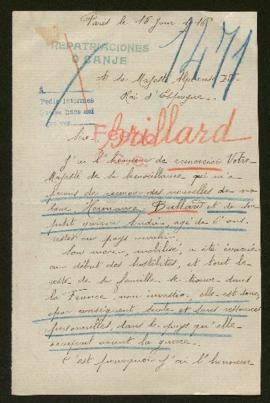 Paris le 15 Juin 1916
1471
REPATRIACIONES
O CANJE
A Sa Majesté Alphonse XIII
Roi d'Espagne
Pedir informes
Sire
Brillard
J'ai l'honneur de remercier Votre
Majesté de la bienveillance qui m'a
des nouvelles de ma
et de son
petit André, âgé de 6 ans
restés en pays
Son mari, mobilisé, a été évacué
au début des hostilités, et tout le
reste de la famille se trouve dans
la France non envahie, elle est donc,
par conséquent seule et sans ressources
personnelles, dans le pays qu'elle
avant la guerre.
C'est pourquoi j'ai l'honneur